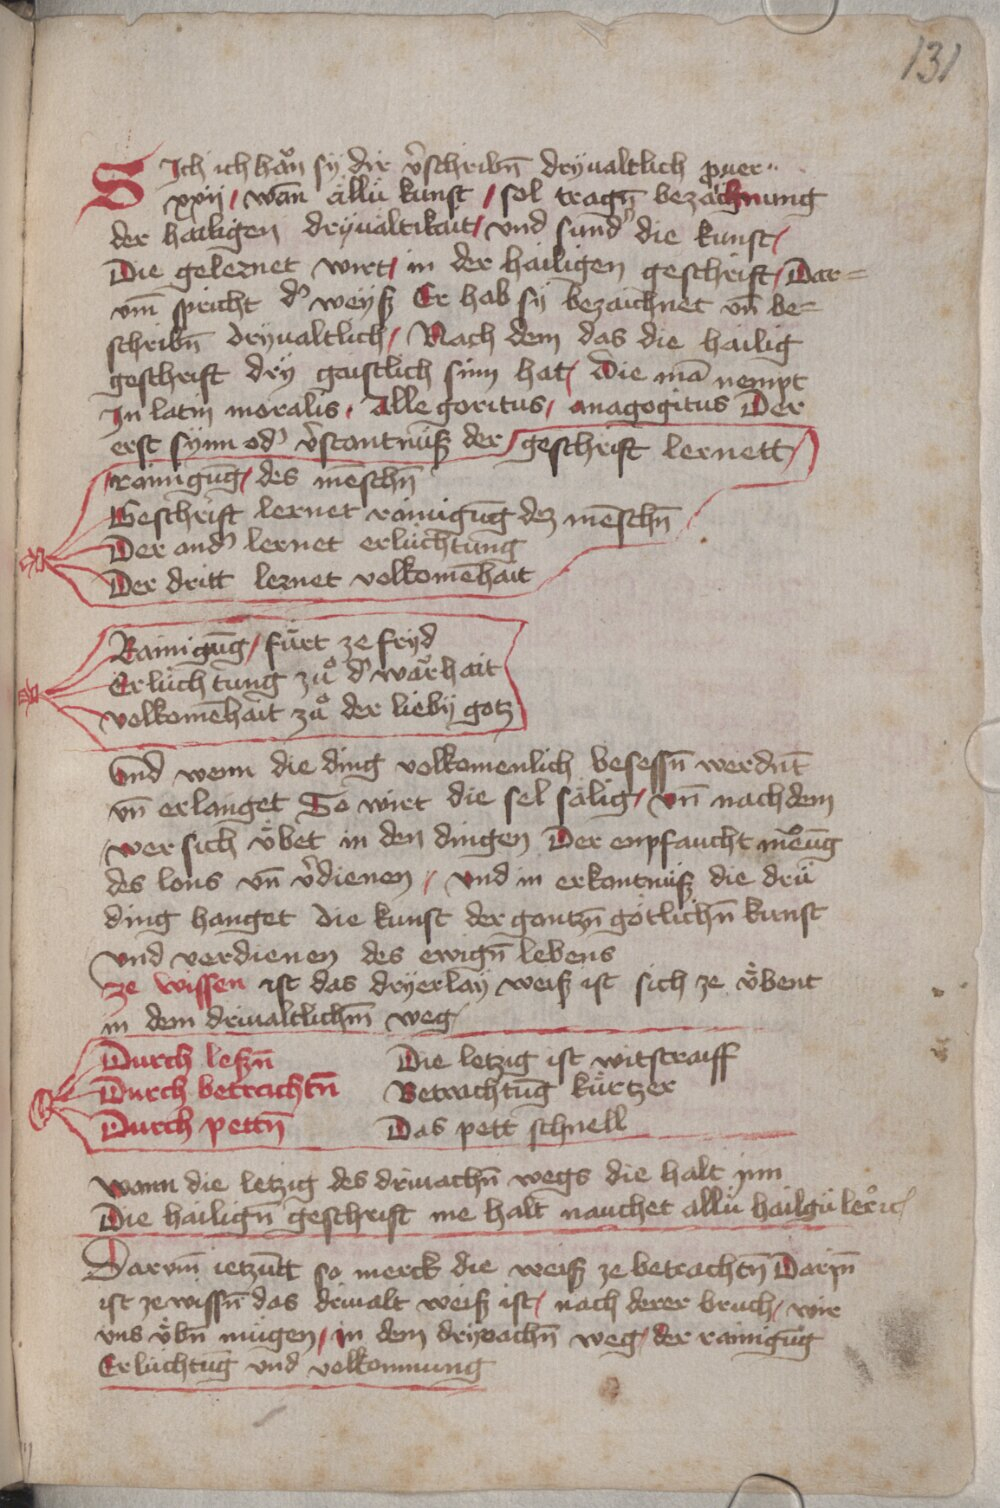 131
SIch ich han sÿ dir v̄schribn̄ drÿualtlich prouer..
xxij / wan̄ allü kunst / sol tragn̄ bezaichnung
der hailigen drÿualtikait / vnd sund' die kunst /
Die geleznet wirt / in der hailigen geschrift / Dar=
vm̄ spricht d' weÿß Er hab sÿ bezaichnet vn̄ be=
schribn̄ drÿualtlich / Nach dem das die hailig
geschrift drÿ gaistlich sinn hat / Die mā nempt
In latin moralis / Allegoritus / anagogitus Der
erst sÿnn od' v̄stantnüß der / geschrift lernett /
rainigūg / des mēschn̄
Geschrift lernet rainigūg dez mēschn̄
Der and' lernet erlüchtung
Der dritt leznet volkomēhait
Rainigūg / fürt ze frÿd
Erlüchtung zů d' warhait
volkomēhait zů der liebÿ gotz
Vnd wenn die ding volkomenlich besessn̄ werdnt̄
vn̄ erlanget So wirt die sel sälig / vn̄ nach dem
wer sich v̈bet in den dingen Der enpfaucht mēug
des lons vn̄ v̄dienen / vnd in erkantnüß die drü
ding hanget die kunst der gantzn̄ götlichn̄ kunst
vnd verdienen des ewign̄ lebens
ze wissen ist das drÿerlaÿ weiß ist sich ze v̈bent
in dem driualtlichm̄ weg
Durch lesn̄ Die letzig ist witstraiff
Durch betrachtn̄ Betrachtūg kürtzer
Durch pettn̄ Das pett schnell
wann die letzig des driuachn̄ wegs die halt inn
Die hailign̄ geschrift me halt nauchet allü hailgü
Darvm̄ ietzūtt so merck die weiß ze betrachtn̄ Darin̄
ist ze wissn̄ das driualt weiß ist / nach derer bruch / wir
vns v̈bn̄ mügen / in dem drÿuachn̄ weg / der rainigūg
Erlüchtūg vnd volkomnung